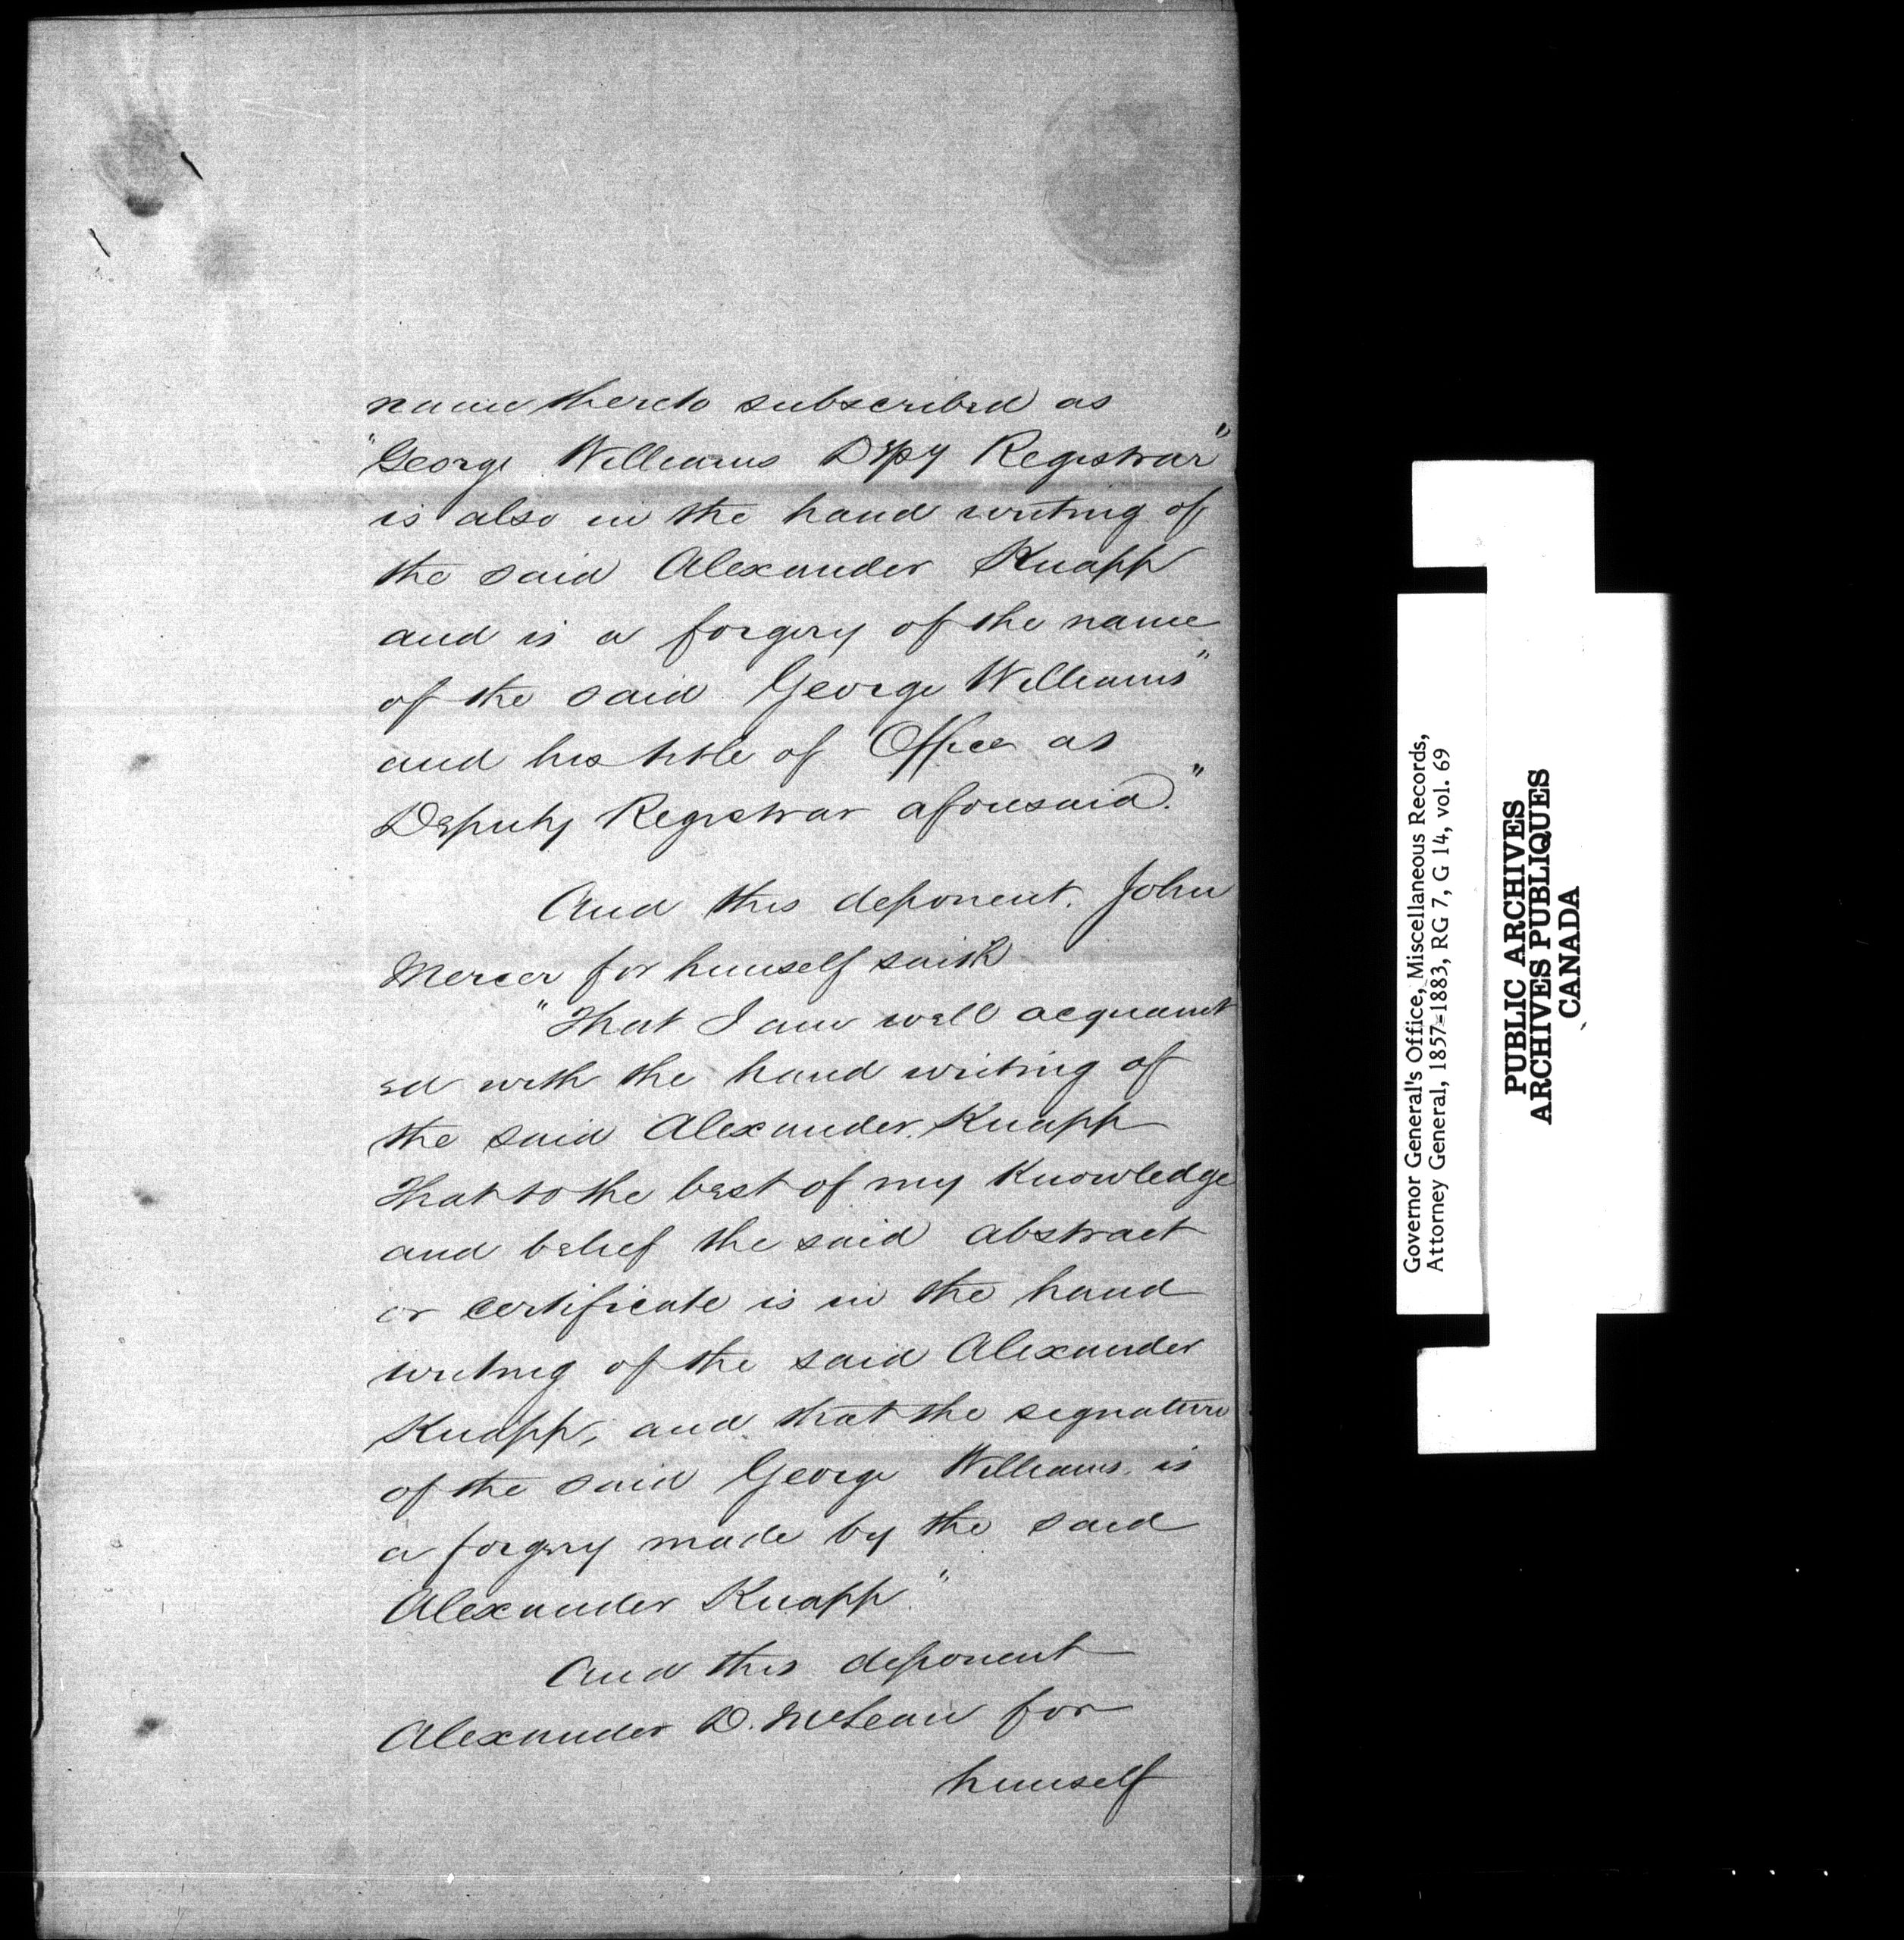 name thereto subscribed as
"George Williams Depy Registrar"
is also in the hand writing of
the said Alexander Knapp
and is a forgery of the name
of the said George Williams"
and his title of Office as
Deputy Registrar aforesaid."
And this deponent. John
Mercer for himself saith
"That I am well acquaint
ed with the hand writing of
the said Alexander Knapp
That to the best of my Knowledge
and belief the said abstract
or certificate is in the hand
writing of the said Alexander
Knapp, and that the signature
of the said George Williams is
a forgery made by the said
Alexander Knapp."
And this deponent
Alexander D. McLean for
himself
Governor General's Office, Miscellaneous Records,
Attorney General, 1857-1883, RG 7, G 14, vol. 69
PUBLIC ARCHIVES
ARCHIVES PUBLIQUES
CANADA